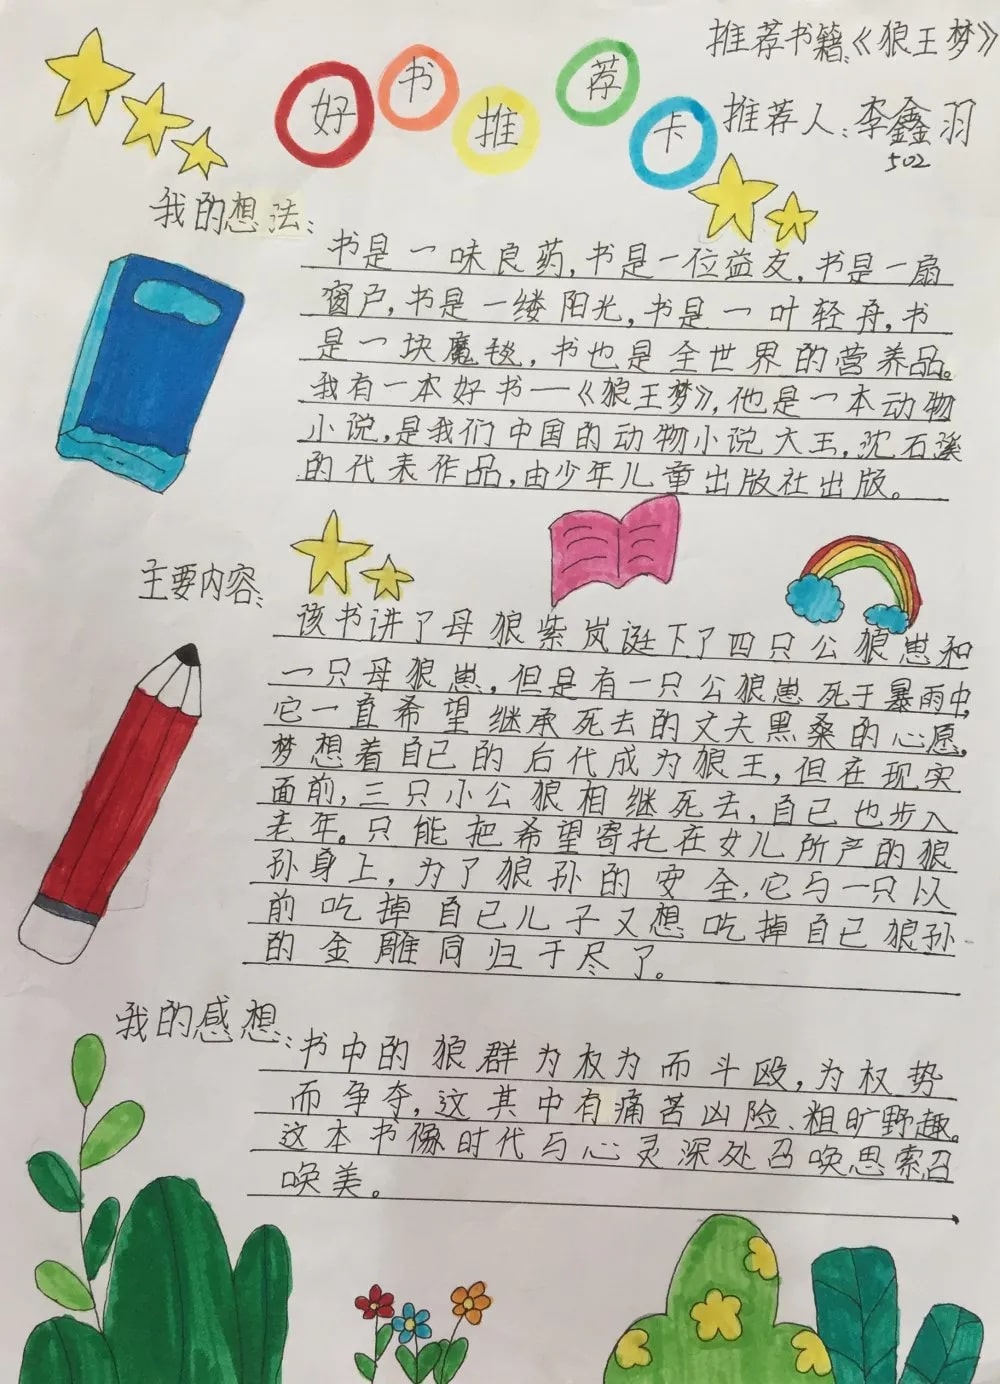 推荐书籍:《狼王梦》
好书推荐卡
推荐人:李鑫羽
502
我的想法:
书是一味良药,书是一位益友,书是一扇
窗户,书是一缕阳光,书是一叶轻舟,书
是一块魔毯,书也是全世界的营养品。
我有一本好书——《狼王梦》,他是一本动物
小说,是我们中国的动物小说大王,沈石溪
的代表作品,由少年儿童出版社出版。
主要内容:
该书讲了母狼紫岚诞下了四只公狼崽和
一只母狼崽,但是有一只公狼崽死于暴雨中,
它一直希望继承死去的丈夫黑桑的心愿,
梦想着自己的后代成为狼王,但在现实
面前,三只小公狼相继死去,自己也步入
老年。只能把希望寄托在女儿所产的狼
孙身上,为了狼孙的安全,它与一只以
前吃掉自己儿子又想吃掉自己狼孙
的金雕同归于尽了。
我的感想:
书中的狼群为权为而斗殴,为权势
而争夺,这其中有痛苦凶险、粗旷野趣。
这本书像时代与心灵深处召唤思索召
唤美。